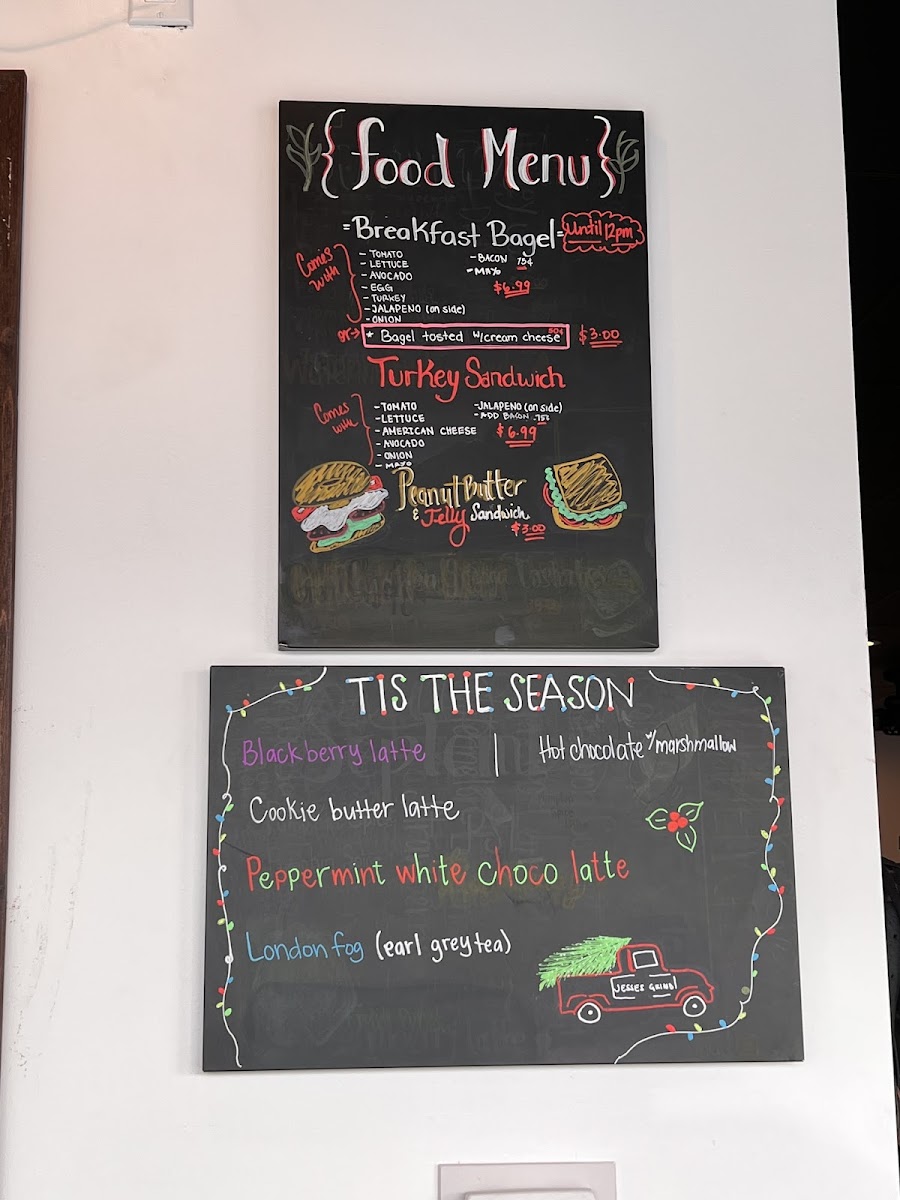 {Food Menu}
=Breakfast Bagel=
Until 12pm
Comes with
- TOMATO
- LETTUCE
- AVOCADO
- EGG
- TURKEY
- JALAPENO (on side)
- ONION
- BACON 75¢
- MAYO
$6.99
or→
* Bagel tosted w/cream cheese 50¢
$3.00
Turkey Sandwich
Comes with
- TOMATO
- LETTUCE
- AMERICAN CHEESE
- AVOCADO
- ONION
- MAYO
- JALAPENO (on side)
- ADD BACON .75¢
$6.99
Peanut Butter
& Jelly Sandwich
$3.00
TIS THE SEASON
Blackberry latte | Hot chocolate w/marshmallow
Cookie butter latte
Peppermint white choco latte
London fog (earl grey tea)
JESSES GRIND